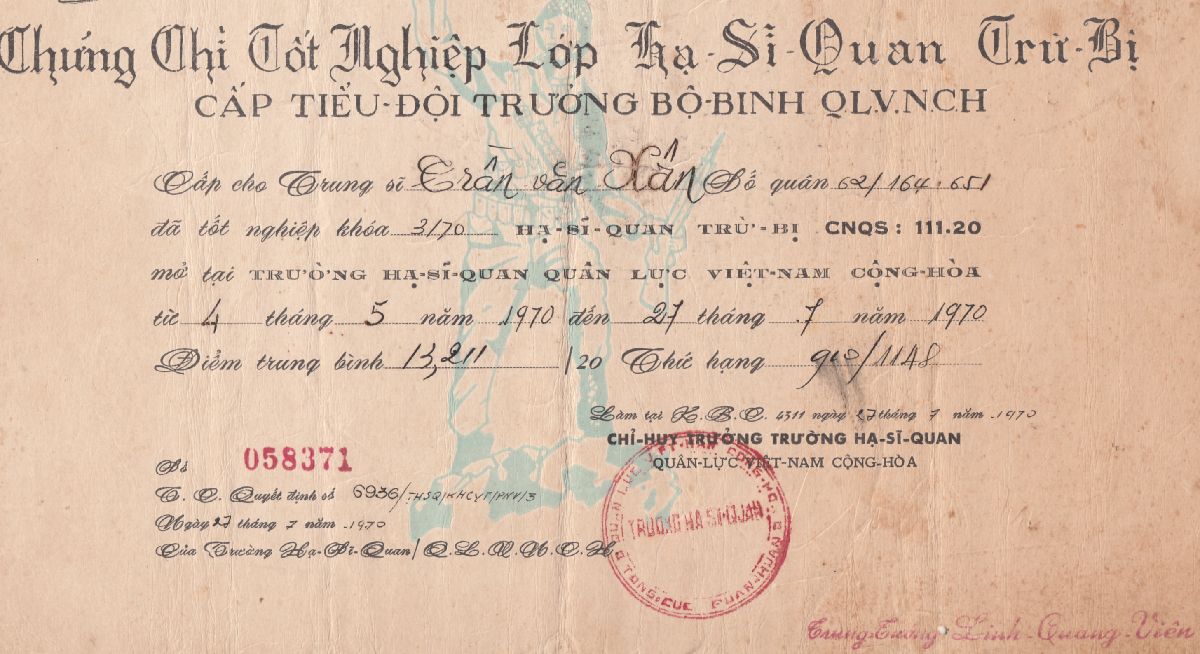 Chứng Chỉ Tốt Nghiệp Lớp Hạ-Sĩ-Quan Trừ-Bị
CẤP TIỂU-ĐỘI TRƯỞNG BỘ-BINH QLV.N.CH
Cấp cho Trung sĩ Trần văn Xân Số quân 62/164.651
đã tốt nghiệp khóa 3/70 HẠ-SĨ-QUAN TRỪ-BỊ CNQS: 111.20
mở tại TRƯỜNG HẠ-SĨ-QUAN QUÂN LỰC VIỆT-NAM CỘNG-HÒA
từ 4 tháng 5 năm 1970 đến 27 tháng 7 năm 1970
Điểm trung bình 13,211 /20 Thứ hạng /1148
Làm tại K.B.C. 4311 ngày 27 tháng 7 năm 1970
CHỈ-HUY TRƯỞNG TRƯỜNG HẠ-SĨ-QUAN
QUÂN-LỰC VIỆT-NAM CỘNG-HÒA
Số 058371
T.C. Quyết định số 6936/THSQ/KHCVT/PNV/3
Ngày 27 tháng 7 năm 1970
Của Trường Hạ-Sĩ-Quan/Q.L.V.N.C.H
QUÂN LỰC VIỆT-NAM CỘNG-HÒA
TRƯỜNG HẠ-SĨ-QUAN
TỔNG-CỤC QUÂN-HUẤN
Trung-Tướng Linh-Quang-Viên